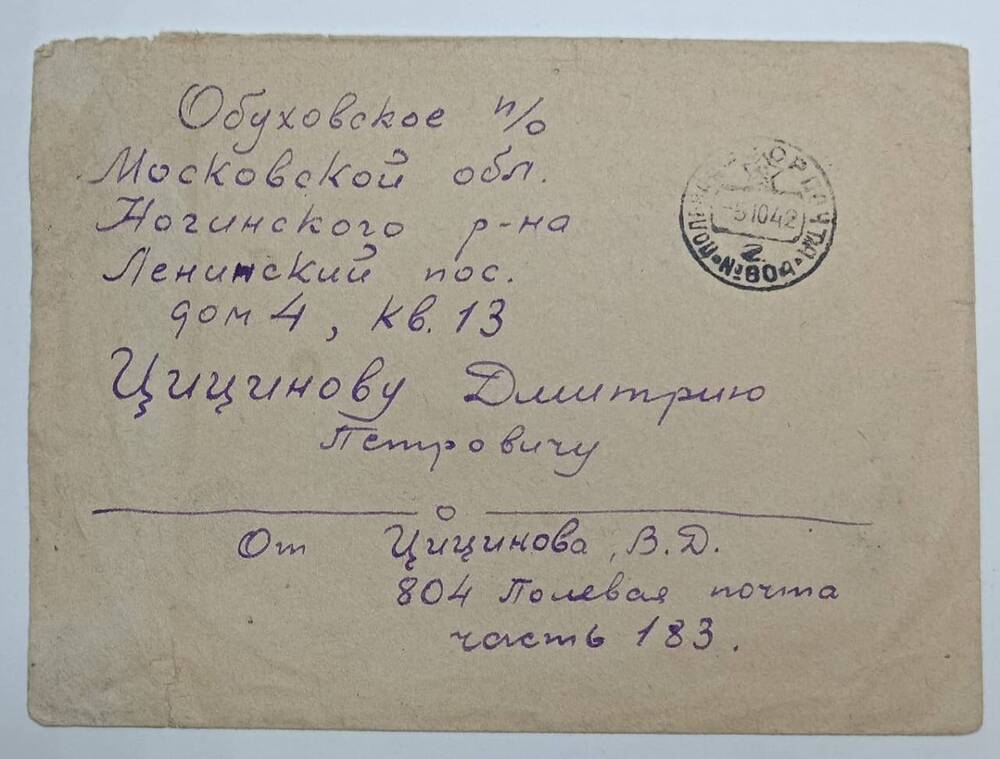 Обуховское п/о
Московской обл.
Ногинского р-на
Ленинский пос.
дом 4, кв. 13
Цицинову Дмитрию
Петровичу
От Цицинова, В. Д.
804 Полевая почта
часть 183.
5 10 42
2
№ 804